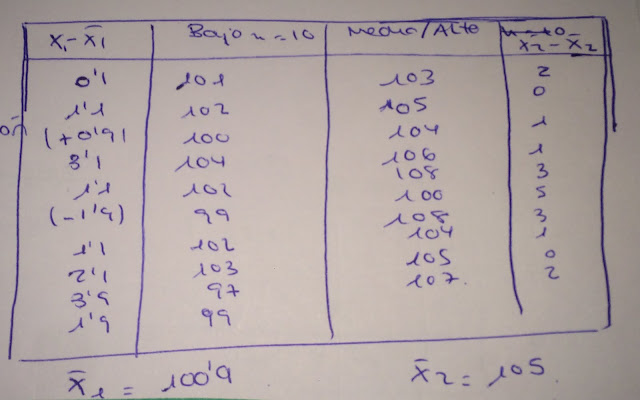 X₁-X̄₁ Bajo n=10 Medio/Alto n=10 X₂-X̄₂
0'1 101 103 2
1'1 102 105 0
(+0'9) 100 104 1
3'1 104 106 1
1'1 102 108 3
(-1'9) 99 100 5
1'1 102 108 3
2'1 103 104 1
3'9 97 105 0
1'9 99 107. 2
X̄₁ = 100'9 X̄₂ = 105